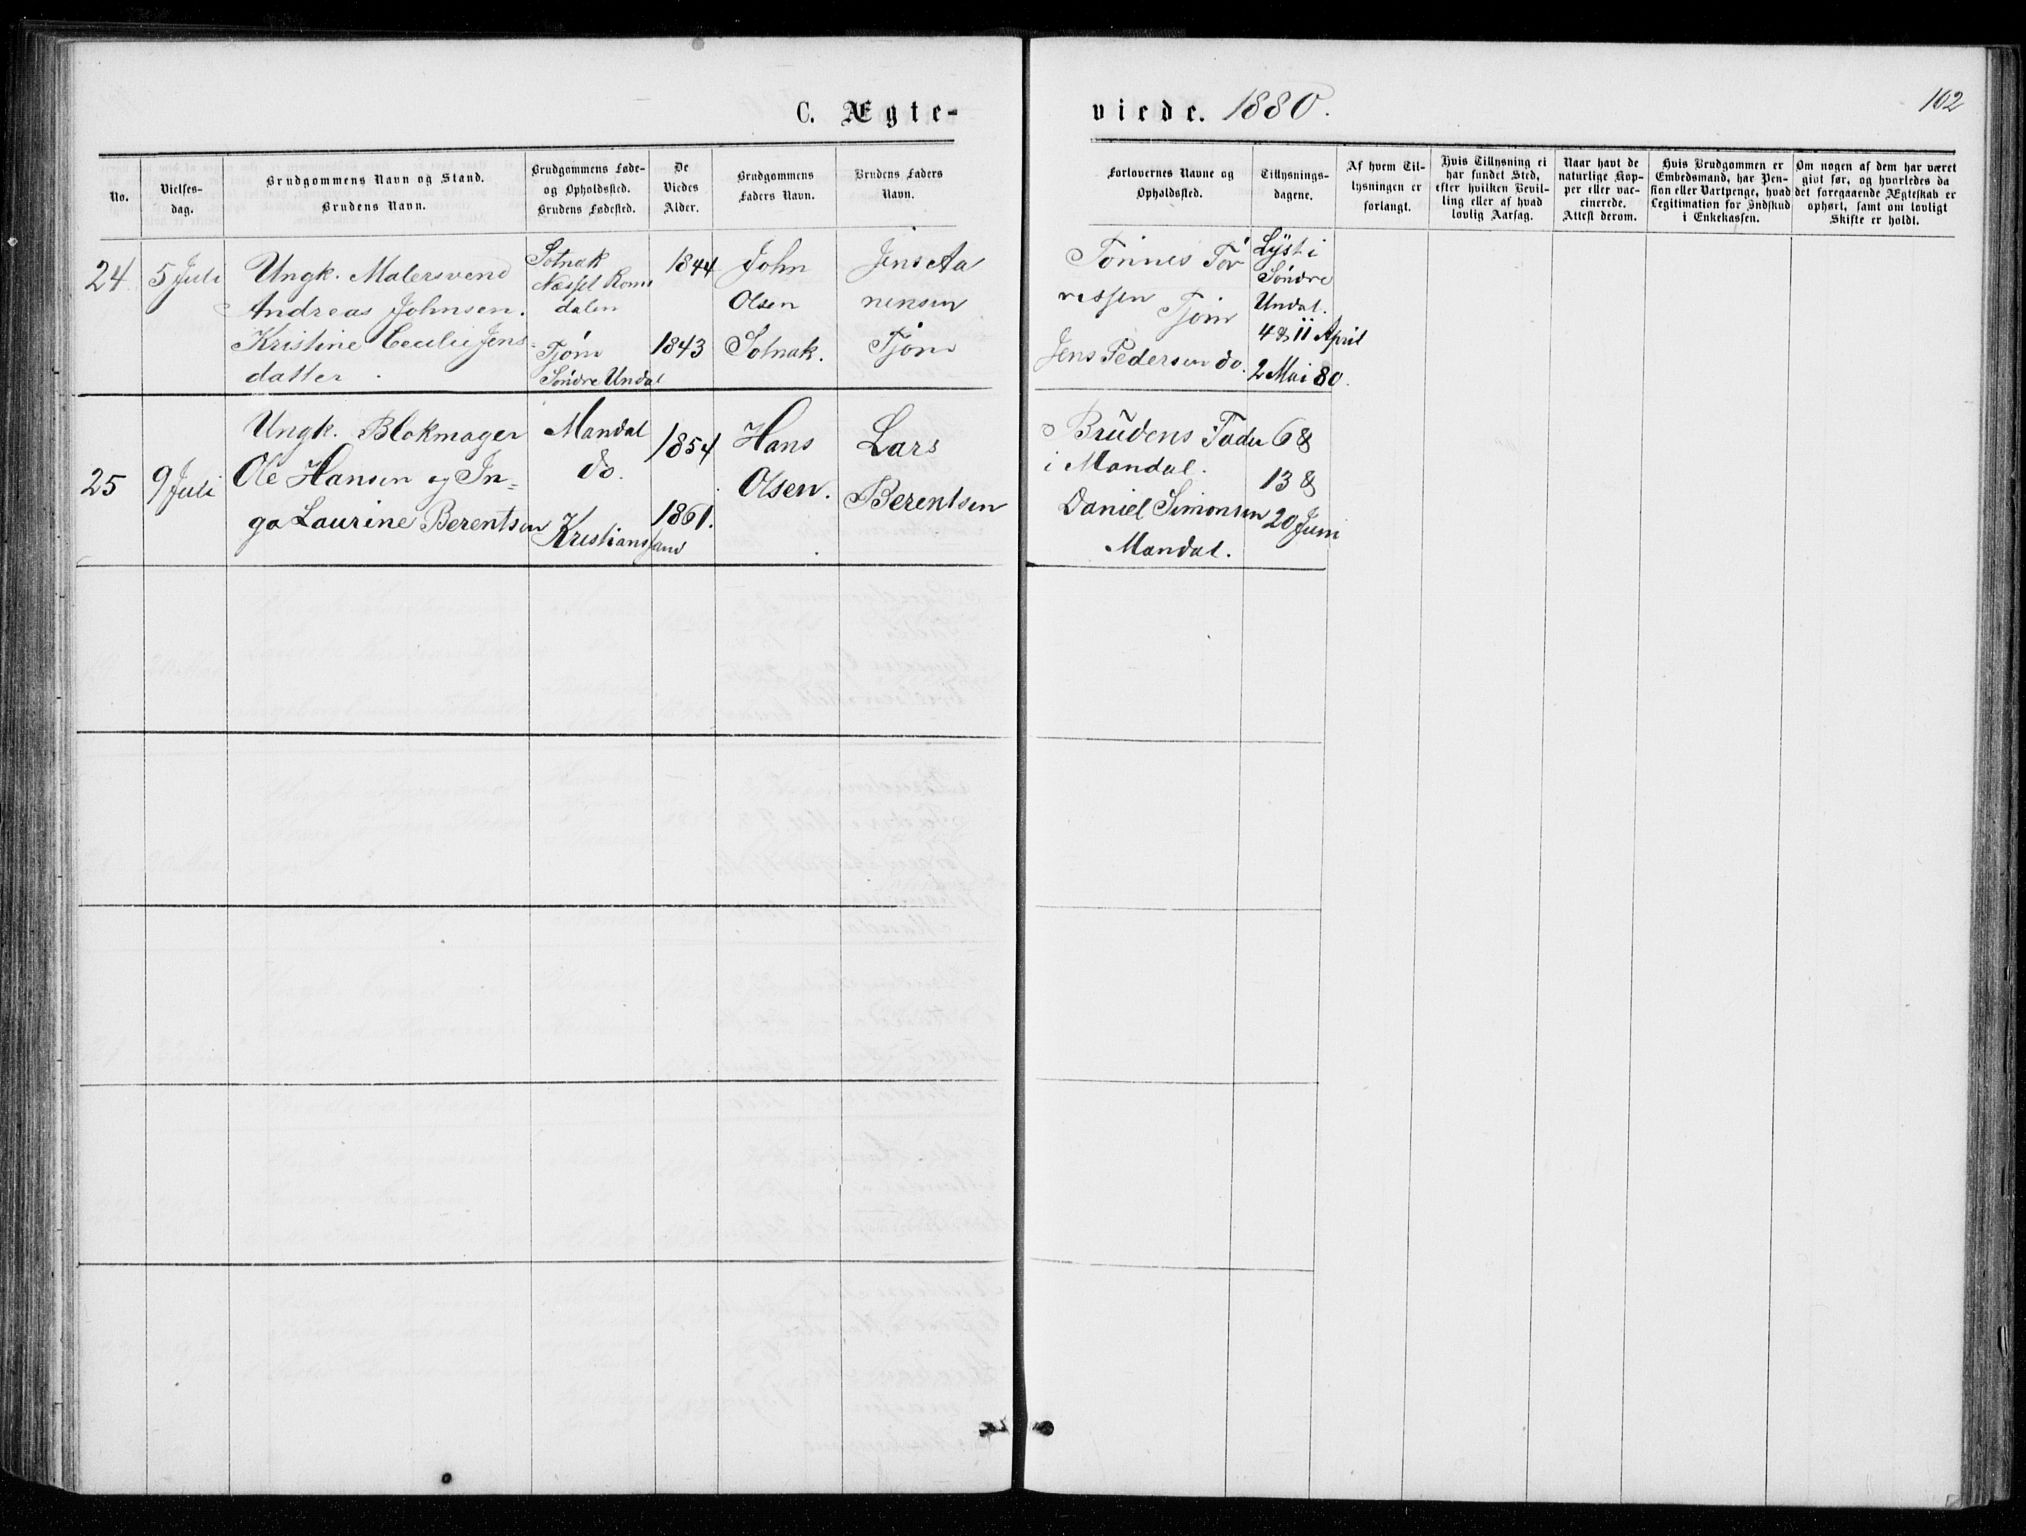 C. Ægte-
viede. 1880.
102
No.
Vielses-
dag.
Brudgommens Navn og Stand.
Brudens Navn.
Brudgommens Føde-
og Opholdssted.
Brudens Fødested.
De
Viedes
Alder.
Brudgommens
Faders Navn.
Brudens Faders
Navn.
Forlovernes Navne og
Opholdssted.
Tillysnings-
dagene.
Af hvem Til-
lysningen er
forlangt.
Hvis Tillysning ei
har fundet Sted,
efter hvilken Bevil-
ling eller af hvad
lovlig Aarsag.
Naar havt de
naturlige Kop-
per eller vac-
cinerede.
Attest derom.
Hvis Brudgommen er
Embedsmand, har Pen-
sion eller Vartpenge, hvad
Legitimation for Indskud
i Enkekassen.
Om nogen af dem har været
gift før, og hvorledes da
det foregaaende Ægteskab er
ophørt, samt om lovligt
Skifte er holdt.
24
5 Juli
Ungk. Malersvend
Andreas Johnsen.
Kristine Cecilie Jens
datter
Solnæk
Nesset Roms
dalen
Tjøm
Søndre Undal
1844
1843
John
Olsen
Solnak.
Jens Aa
nensen
Tjøm
Tønnes Tør
resen Tjøm
Jens Pedersen do.
Lyst i
Søndre
Undal.
4 & 11 April
2 Mai 80.
25
9 Juli
Ungk. Blokmager
Ole Hansen og In-
ga Laurine Berentsen
Mandal
do.
Kristiansand
1854
1861.
Hans
Olsen.
Lars
Berentsen
Brudens Fader
i Mandal.
Daniel Simonsen
Mandal.
6 &
13 &
20 Juni